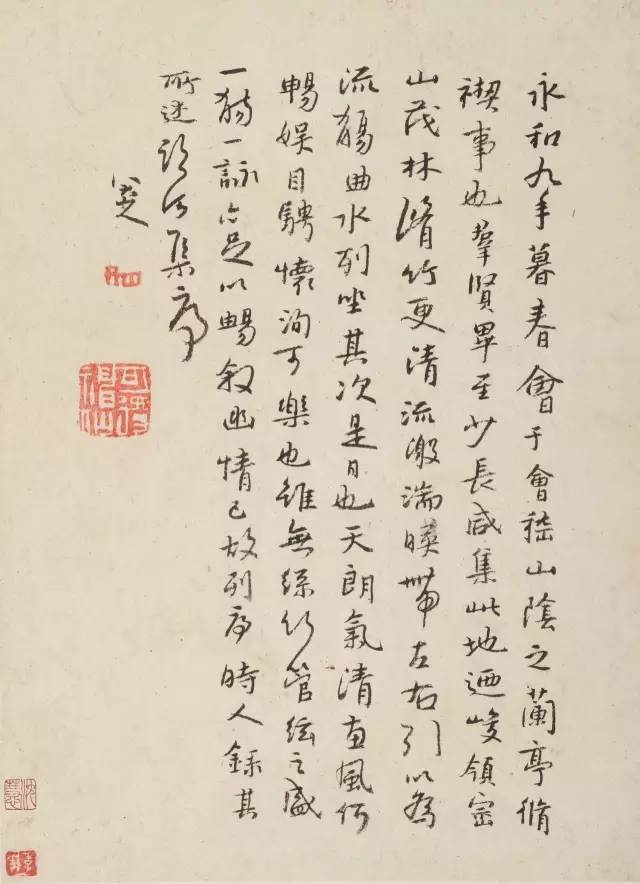 永和九年暮春會于會稽山陰之蘭亭脩
禊事也羣賢畢至少長咸集此地迺峻領崇
山茂林脩竹更清流激湍暎帶左右引以為
流觴曲水列坐其次是日也天朗氣清惠風和
暢娛目騁懷洵可樂也雖無絲竹管絃之盛
一觴一詠亦足以暢叙幽情已故列序時人錄其
所述臨河集序
八大山人